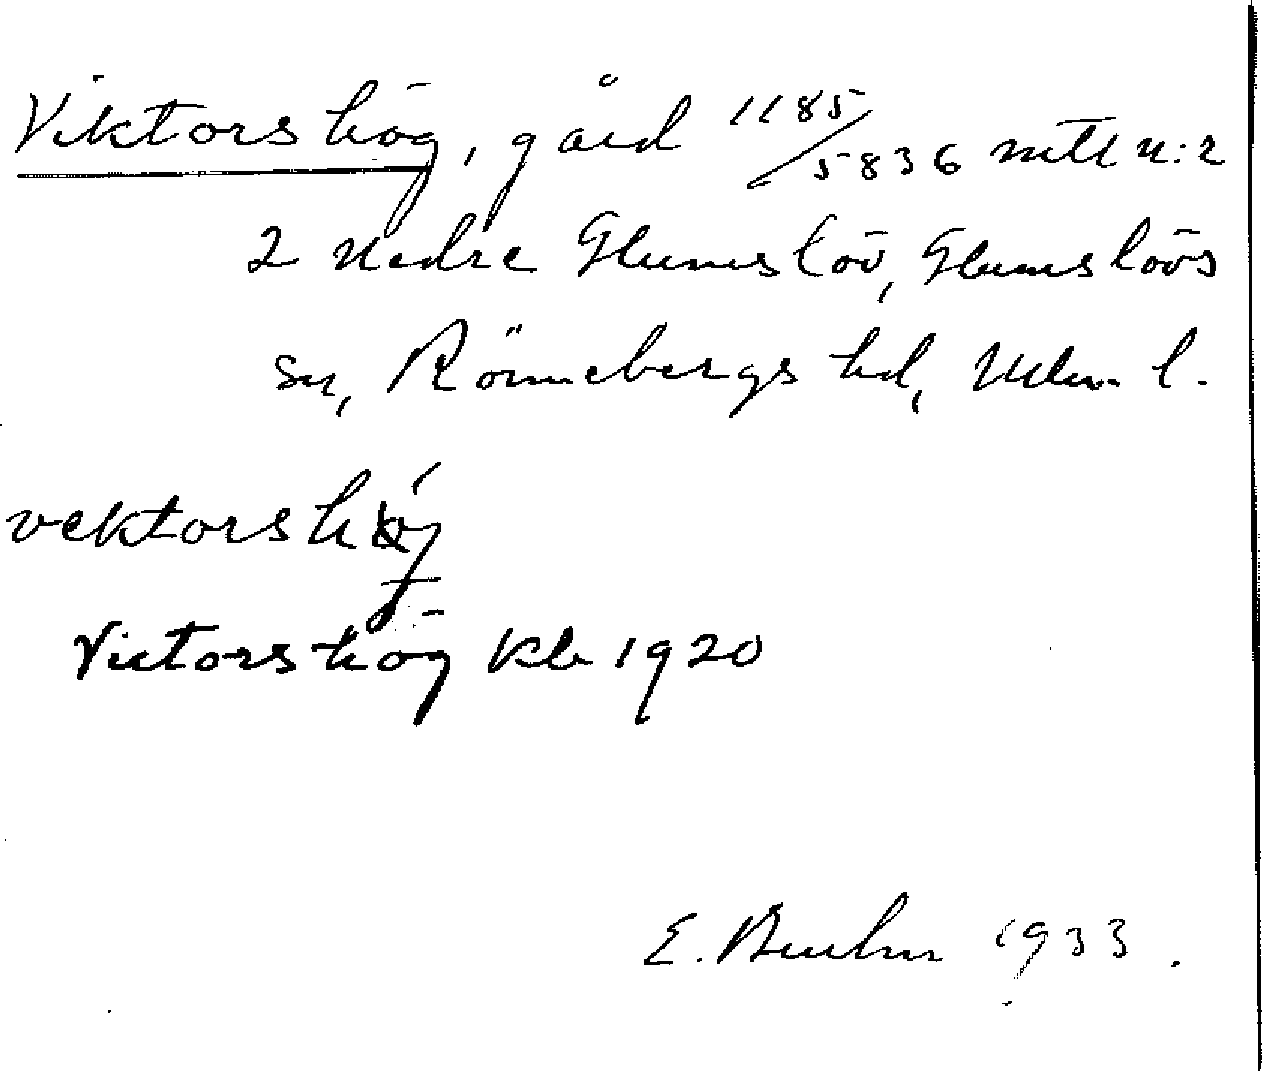 Viktorshög, gård 1185/5836 mtl n:r
2 Nedre Glumslöv, Glumslövs
sn, Rönnebergs hd, Mlm. l.
vektorshǿg
Victorshög Kb 1920
E. Bruhn 1933.